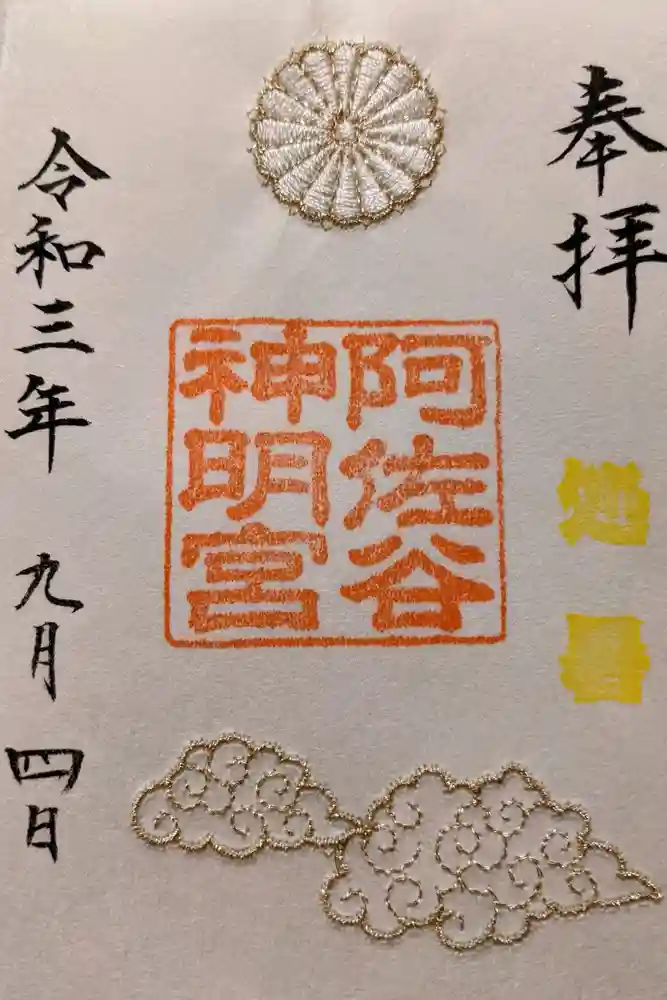 奉拝
処暑
阿佐谷
神明宮
令和三年 九月 四日